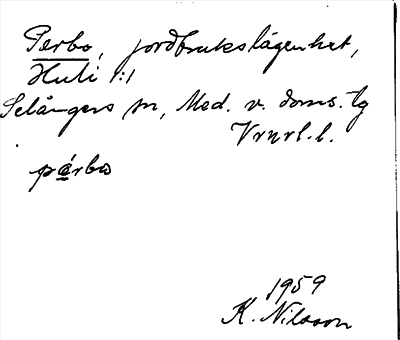 Perbo, jordbrukslägenhet,
Huli 1:1
Selångers sn, Med. v. doms. tg
Vrnrl.l.
pärbo
1959
K. Nilsson